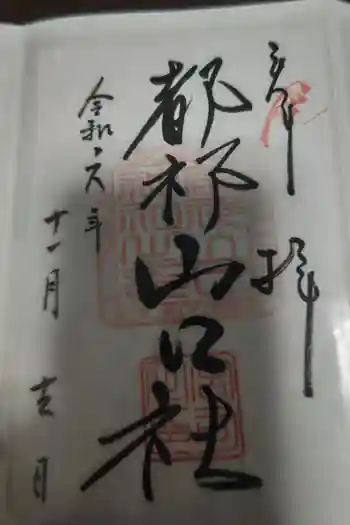 奉拝
都祁山口社
令和六年
十一月吉日